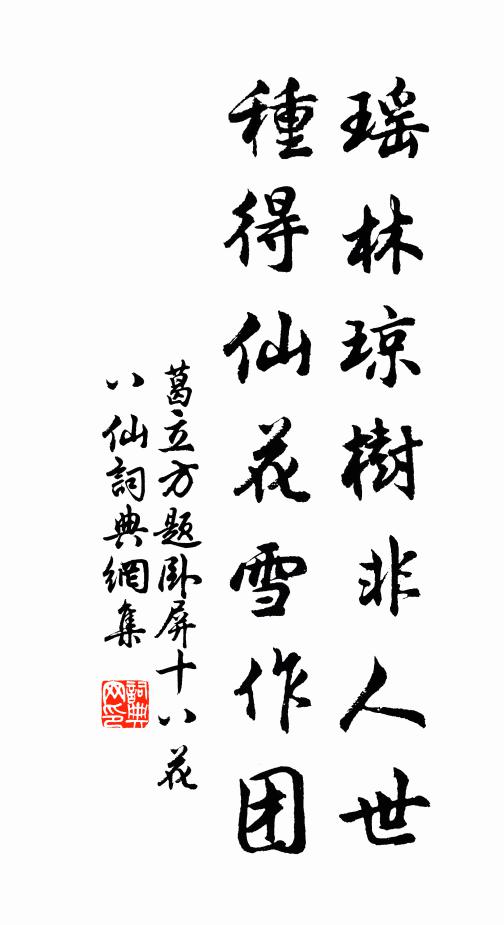 瑶林琼樹非人世
種得仙花雪作团
葛立方题卧屏十八花
八仙詞典網集
詞典网印